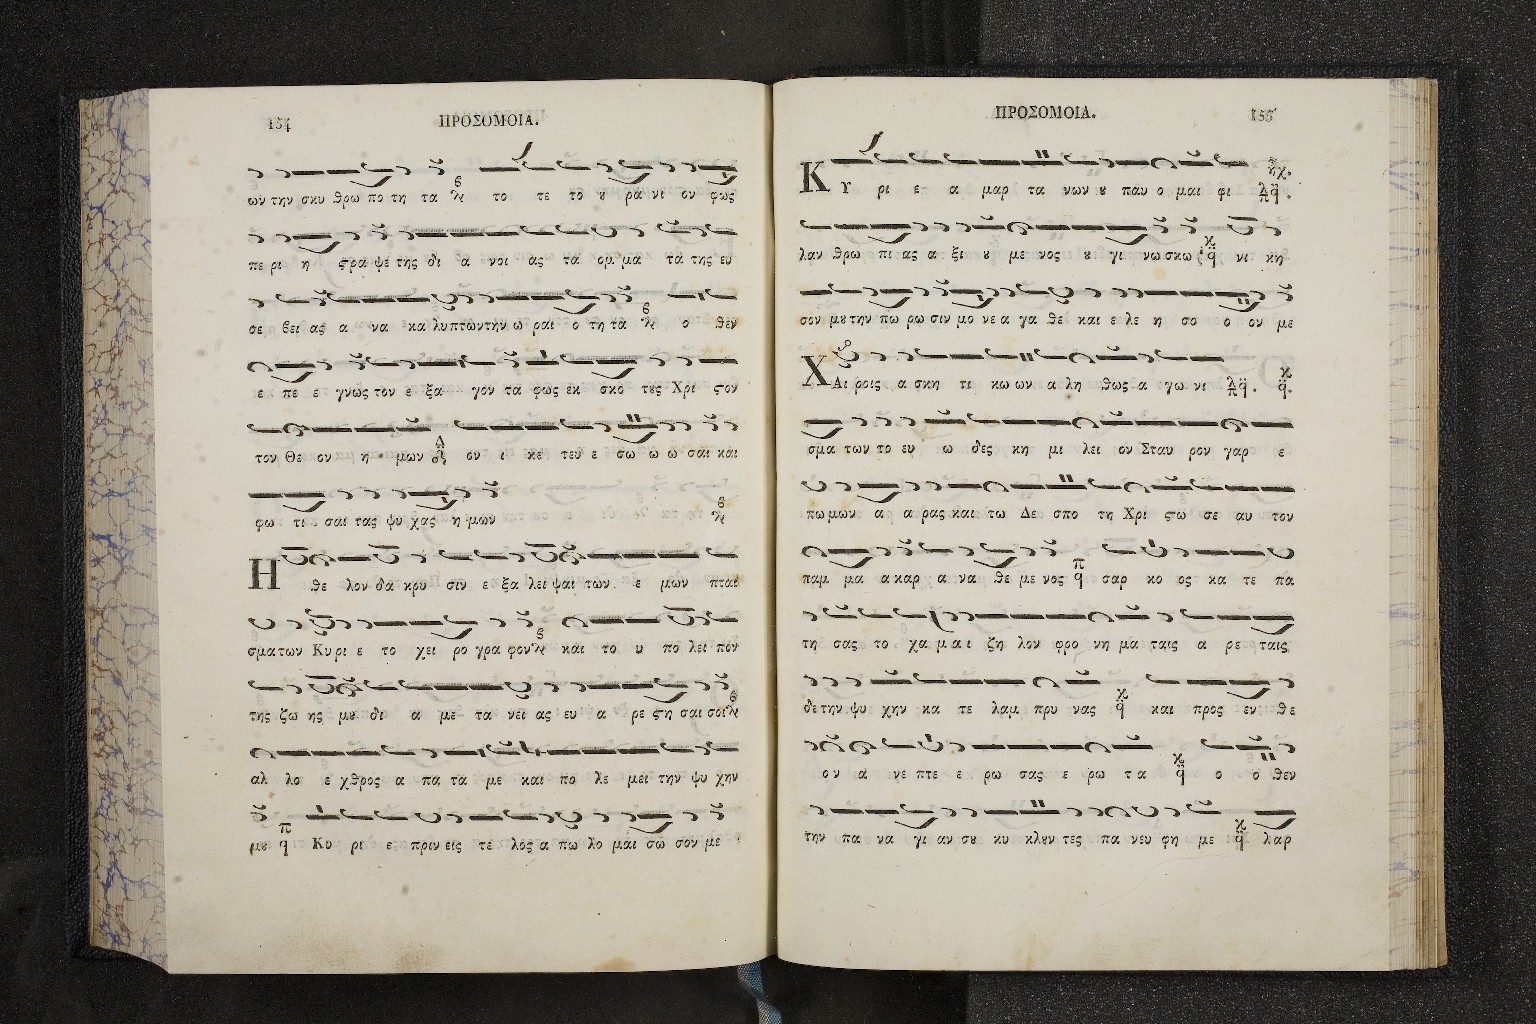 154
ΠΡΟΣΟΜΟΙΑ.
ων την σκυ θρω πο τη τα το τε το υ ρα νι ον φως
πε ρι η στρα ψε της δι α νοι ας τα ομ μα τα της ευ
σε βει ας α να κα λυπτων την ω ραι ο τη τα ο θεν
ε πε ε γνως τον ε ξα γον τα φως εκ σκο τους Χρι στον
τον Θε ον η μων ον ι κε τευ ε σω ω ω σαι και
φω τι σαι τας ψυ χας η μων
Η θε λον δα κρυ σιν ε ξα λει ψαι των ε μων πται
σμα των Κυ ρι ε το χει ρο γρα φον και το υ πο λει πον
της ζω ης μου δι α με τα νει ας ευ α ρε στη σαι σοι
αλ λο ε χθρος α πα τα με και πο λε μει την ψυ χην
μου Κυ ρι ε πριν εις τε λος α πω λο μαι σω σον με
ΠΡΟΣΟΜΟΙΑ.
155
Κυ ρι ε α μαρ τα νων ου παυ ο μαι φι ηχ.
λαν θρω πι ας α ξι ου με νος ου γι νω σκω νι κη
σον μου την πω ρω σιν μο νε α γα θε και ε λε η σο ο ον με
Χαι ροις α σκη τι κω ων α λη θως α γω νι
σμα των το ευ ω δες κη μι λει ον Σταυ ρον γαρ ε
πω μων α α ρας και τω Δε σπο τη Χρι στω σε αυ τον
παμ μα α καρ α να θε με νος σαρ κο ος κα τε πα
τη σας το χα μ α ι ζη λον φρο νη μα ταις α ρε ταις
δε την ψυ χην κα τε λαμ πρυ νας και προς εν θε
ον α νε πτε ε ρω σας ε ρω τα ο ο θεν
την πα να γι αν σου κυ κλουν τες πα νευ φη με λαρ